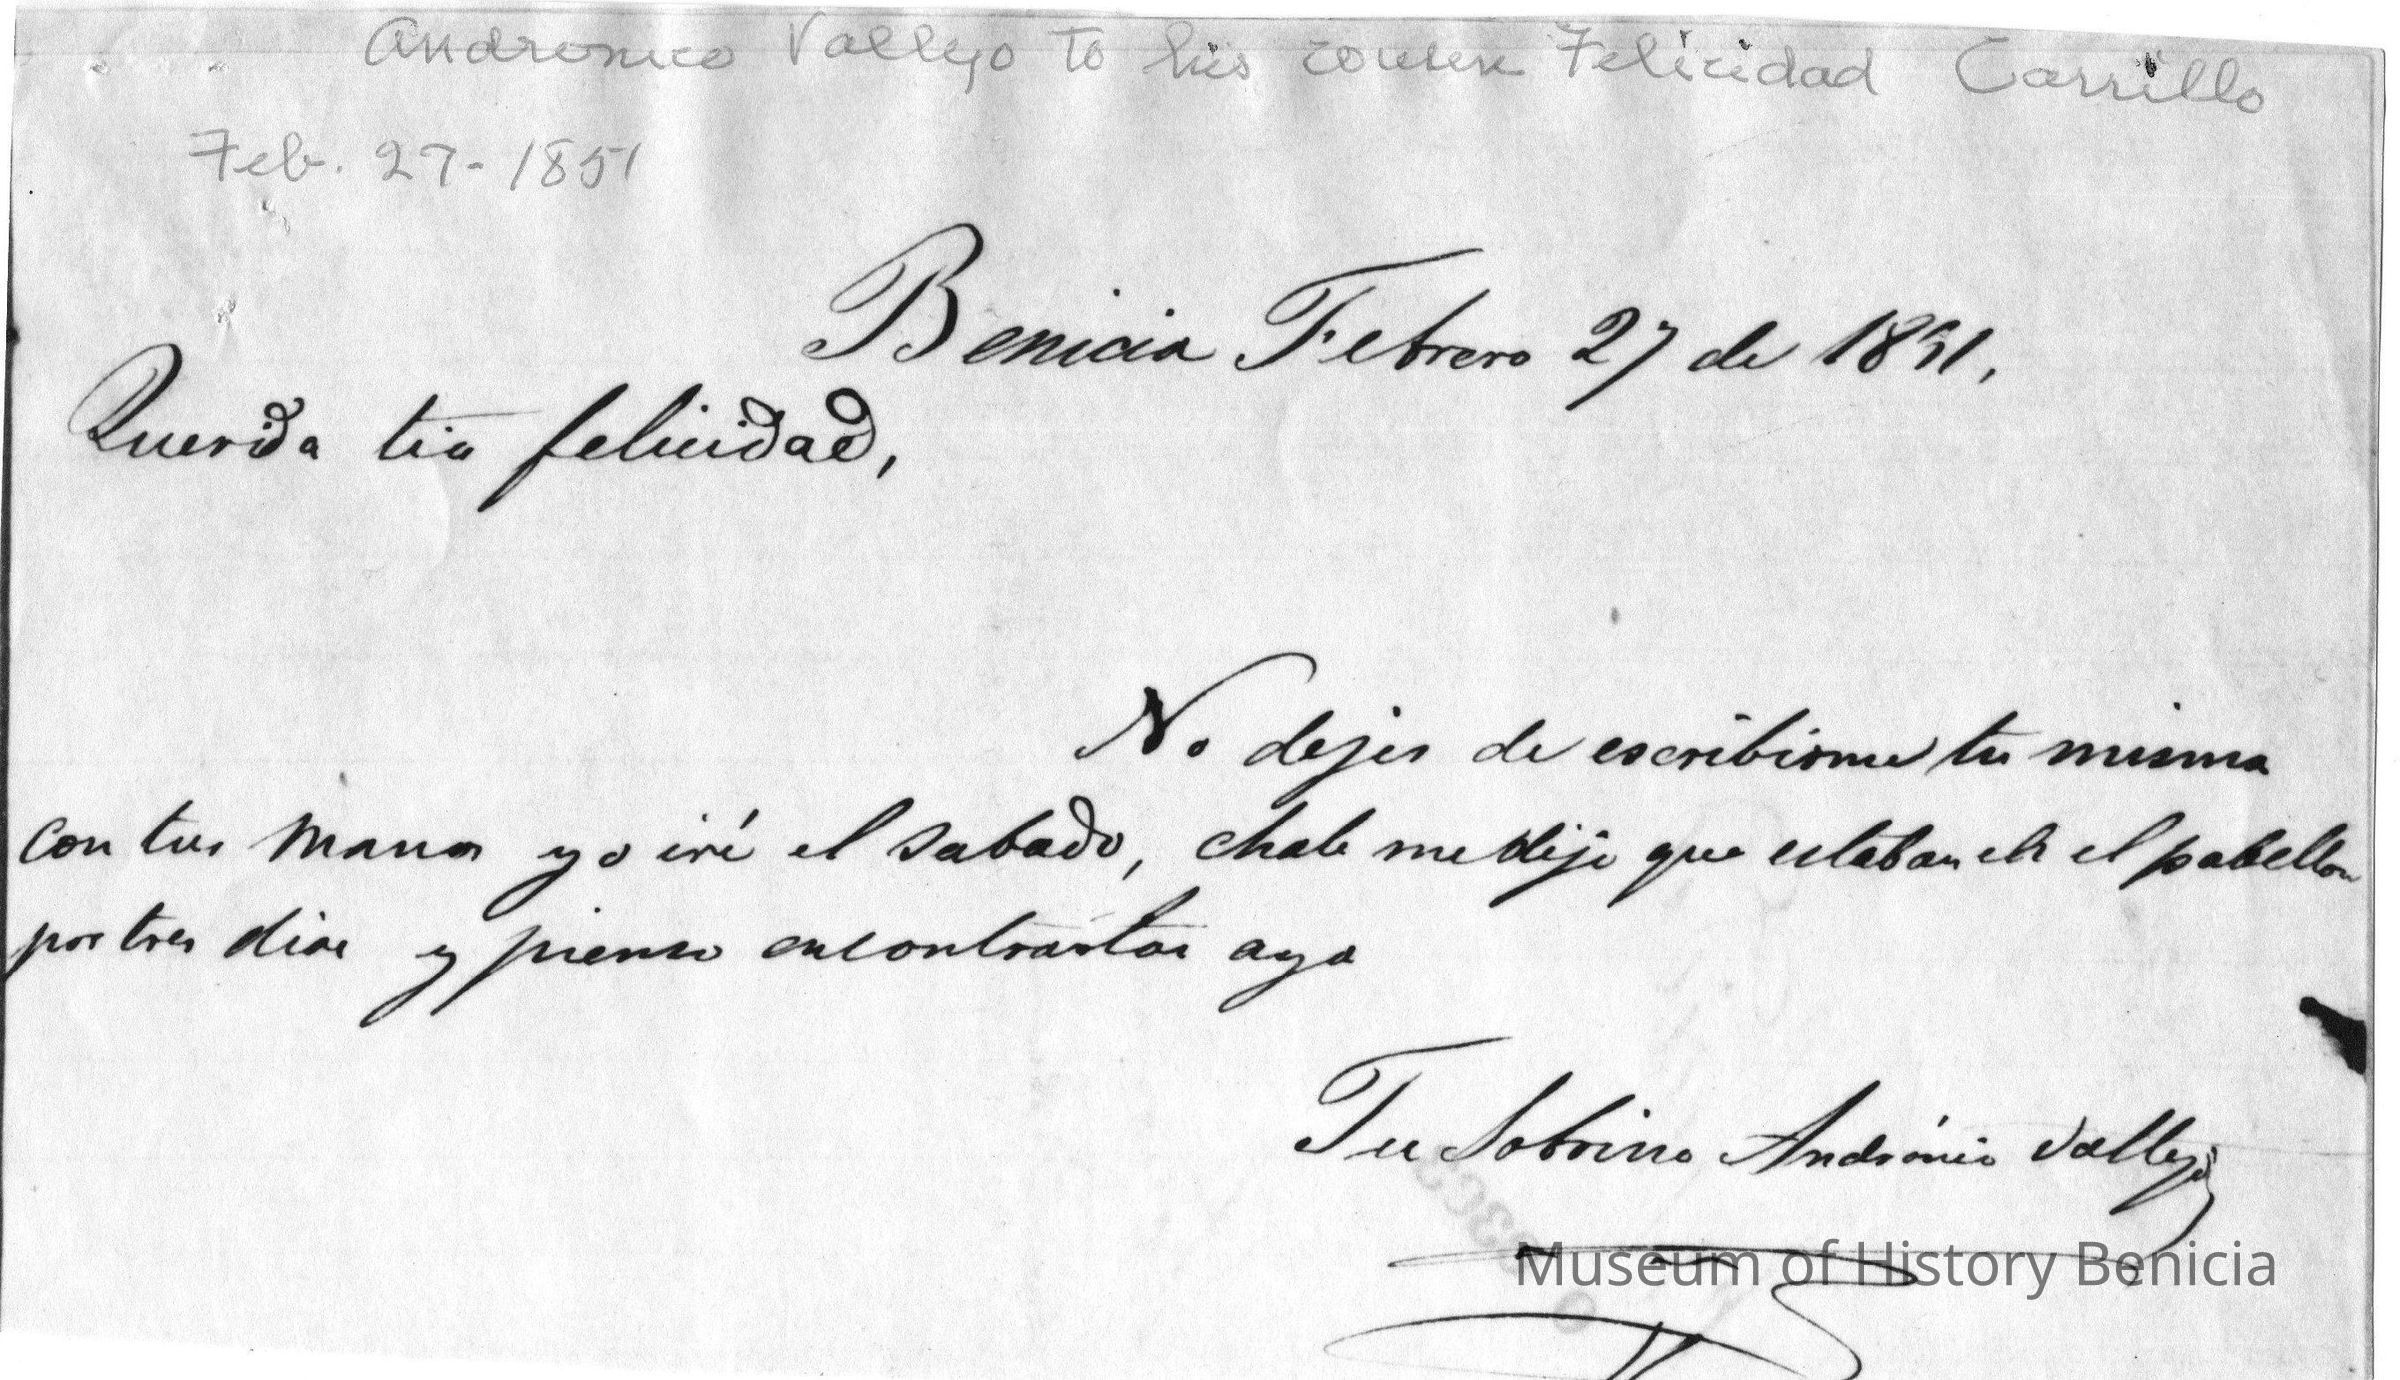 Andronico Vallejo to his cousin Felicidad Carrillo
Feb. 27-1851
Benicia Febrero 27 de 1851,
Querida tia felicidad,
No dejes de escribirme tu misma
con tus manos yo iré el sabado, chale me dijo que estaban en el pabellon
por tres dias y pienso encontrartas aya
Tu Sobrino Andrónico Vallejo
Museum of History Benicia